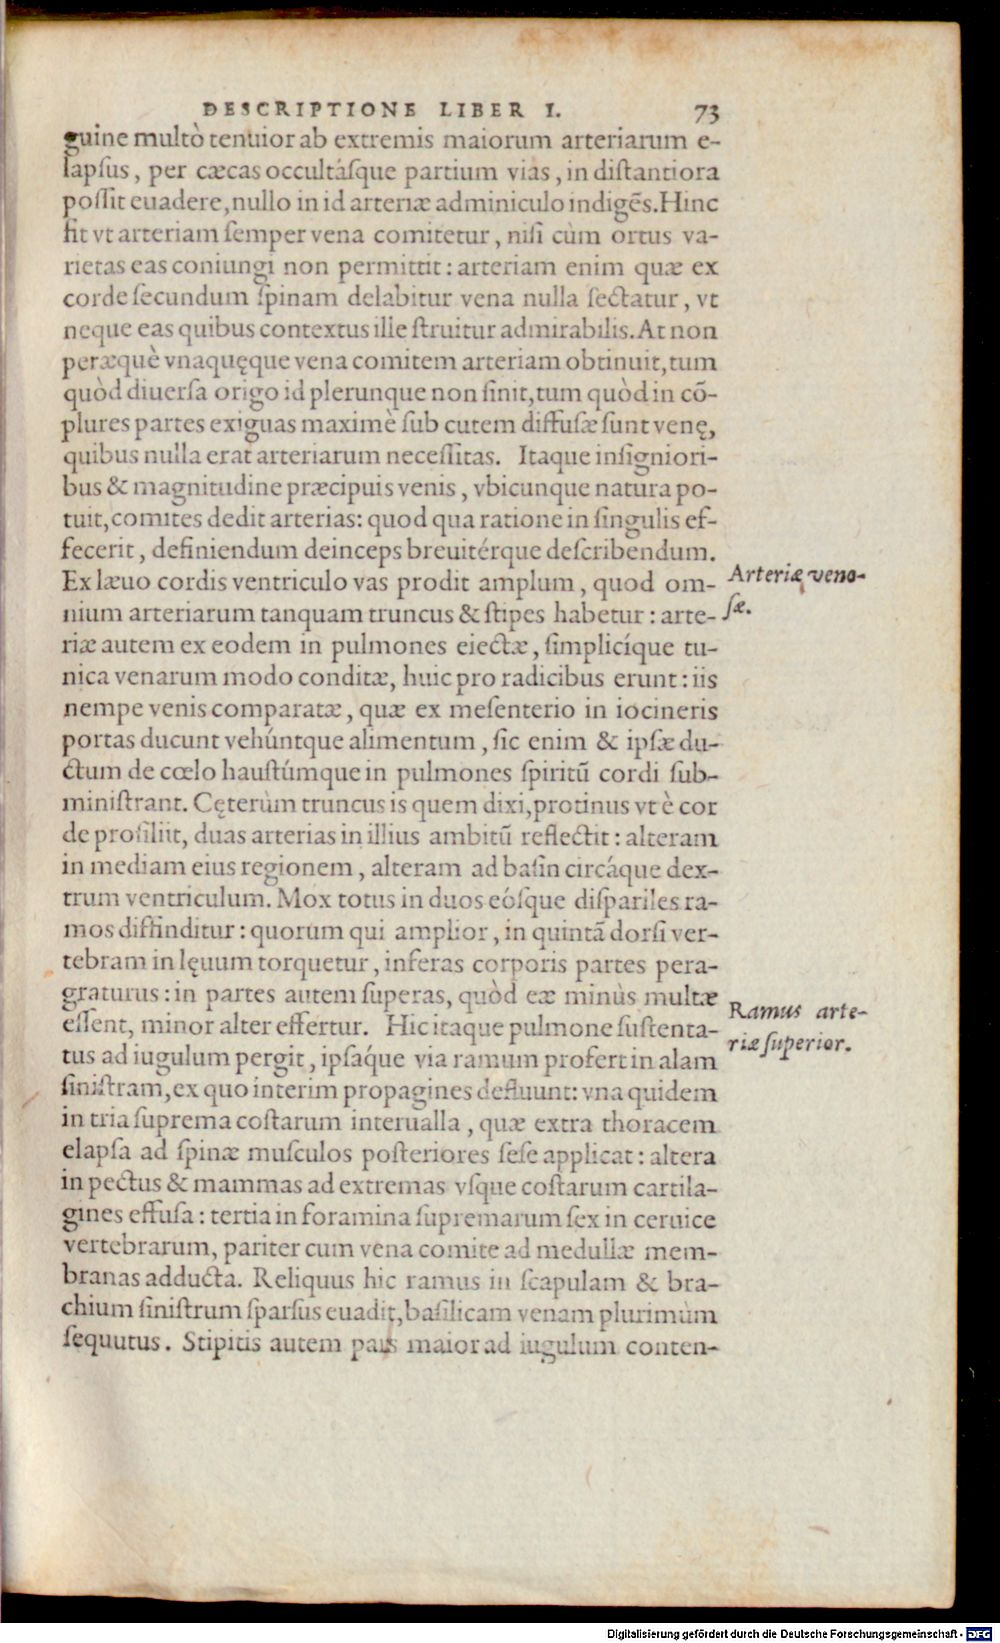 DESCRIPTIONE LIBER I. 73
guine multò tenuior ab extremis maiorum arteriarum e-
lapſus, per cæcas occultáſque partium vias, in diſtantiora
poſſit euadere, nullo in id arteriæ adminiculo indigẽs. Hinc
fit vt arteriam ſemper vena comitetur, niſi cùm ortus va-
rietas eas coniungi non permittit: arteriam enim quæ ex
corde ſecundum ſpinam delabitur vena nulla ſectatur, vt
neque eas quibus contextus ille ſtruitur admirabilis. At non
peræquè vnaquęque vena comitem arteriam obtinuit, tum
quòd diuerſa origo id plerunque non ſinit, tum quòd in cõ-
plures partes exiguas maximè ſub cutem diffuſæ ſunt venę,
quibus nulla erat arteriarum neceſſitas. Itaque inſigniori-
bus & magnitudine præcipuis venis, vbicunque natura po-
tuit, comites dedit arterias: quod qua ratione in ſingulis ef-
fecerit, definiendum deinceps breuitérque deſcribendum.
Ex læuo cordis ventriculo vas prodit amplum, quod om-
Arteriæ veno-
nium arteriarum tanquam truncus & ſtipes habetur: arte-
ſæ.
riæ autem ex eodem in pulmones eiectæ, ſimplicíque tu-
nica venarum modo conditæ, huic pro radicibus erunt: iis
nempe venis comparatæ, quæ ex meſenterio in iocineris
portas ducunt vehúntque alimentum, ſic enim & ipſæ du-
ctum de cœlo hauſtúmque in pulmones ſpiritũ cordi ſub-
miniſtrant. Cęterùm truncus is quem dixi, protinus vt è cor
de profiliit, duas arterias in illius ambitũ reflectit: alteram
in mediam eius regionem, alteram ad baſin circáque dex-
trum ventriculum. Mox totus in duos eóſque diſpariles ra-
mos diffinditur: quorum qui amplior, in quintã dorſi ver-
tebram in lęuum torquetur, inferas corporis partes pera-
graturus: in partes autem ſuperas, quòd eæ minùs multæ
Ramus arte-
eſſent, minor alter effertur. Hic itaque pulmone ſuſtenta-
riæ ſuperior.
tus ad iugulum pergit, ipſáque via ramum profert in alam
ſiniſtram, ex quo interim propagines defluunt: vna quidem
in tria ſuprema coſtarum interualla, quæ extra thoracem
elapſa ad ſpinæ muſculos poſteriores ſeſe applicat: altera
in pectus & mammas ad extremas vſque coſtarum cartila-
gines effuſa: tertia in foramina ſupremarum ſex in ceruice
vertebrarum, pariter cum vena comite ad medullæ mem-
branas adducta. Reliquus hic ramus in ſcapulam & bra-
chium ſiniſtrum ſparſus euadit, baſilicam venam plurimùm
ſequutus. Stipitis autem pars maior ad iugulum conten-
Digitalisierung gefördert durch die Deutsche Forschungsgemeinschaft - DFG